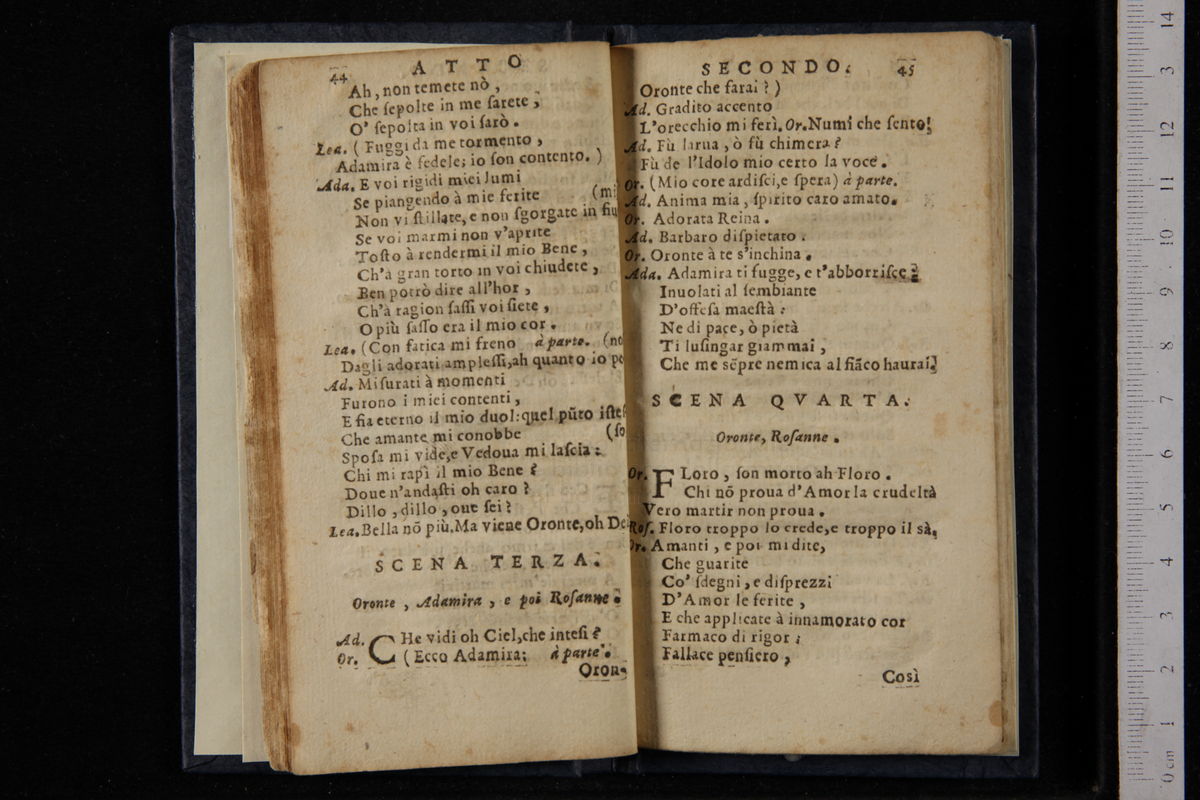 44
ATTO
Ah, non temete nò,
Che ſepolte in me ſarete,
O' ſepolta in voi ſarò.
Lea. (Fuggi da me tormento,
Adamira è fedele; io ſon contento.)
Ada. E voi rigidi miei lumi
Se piangendo à mie ferite (mi
Non vi ſtillate, e non ſgorgate in fiu
Se voi marmi non v'aprite
Toſto à rendermi il mio Bene,
Ch'à gran torto in voi chiudete,
Ben potrò dire all'hor,
Ch'à ragion ſaſſi voi ſiete,
O più ſaſſo era il mio cor.
Lea. (Con fatica mi freno à parte. (no
Dagli adorati ampleſſi, ah quanto io pe
Ad. Miſurati à momenti
Furono i miei contenti,
E ſia eterno il mio duol: quel pũto iſteſ
Che amante mi conobbe (ſo
Spoſa mi vide, e Vedoua mi laſcia:
Chi mi rapì il mio Bene?
Doue n'andaſti oh caro?
Dillo, dillo, oue ſei?
Lea. Bella nõ più. Ma viene Oronte, oh Dei
SCENA TERZA.
Oronte, Adamira, e poi Roſanne.
Ad. CHe vidi oh Ciel, che inteſi?
Or. (Ecco Adamira; à parte.
Oron-
SECONDO.
45
Oronte che farai?)
Ad. Gradito accento
L'orecchio mi ferì. Or. Numi che ſento!
Ad. Fù larua, ò fù chimera?
Fù de l'Idolo mio certo la voce.
Or. (Mio core ardiſci, e ſpera) à parte.
Ad. Anima mia, ſpirito caro amato.
Or. Adorata Reina.
Ad. Barbaro diſpietato.
Or. Oronte à te s'inchina.
Ada. Adamira ti fugge, e t'abborriſce;
Inuolati al ſembiante
D'offeſa maeſtà:
Ne di pace, ò pietà
Ti luſingar giammai,
Che me sẽpre nemica al fiãco haurai.
SCENA QVARTA.
Oronte, Roſanne.
Or. FLoro, ſon morto ah Floro.
Chi nõ proua d'Amor la crudeltà
Vero martir non proua.
Roſ. Floro troppo lo crede, e troppo il sà.
Or. Amanti, e poi mi dite,
Che guarite
Co' ſdegni, e diſprezzi
D'Amor le ferite,
E che applicate à innamorato cor
Farmaco di rigor:
Fallace penſiero,
Così